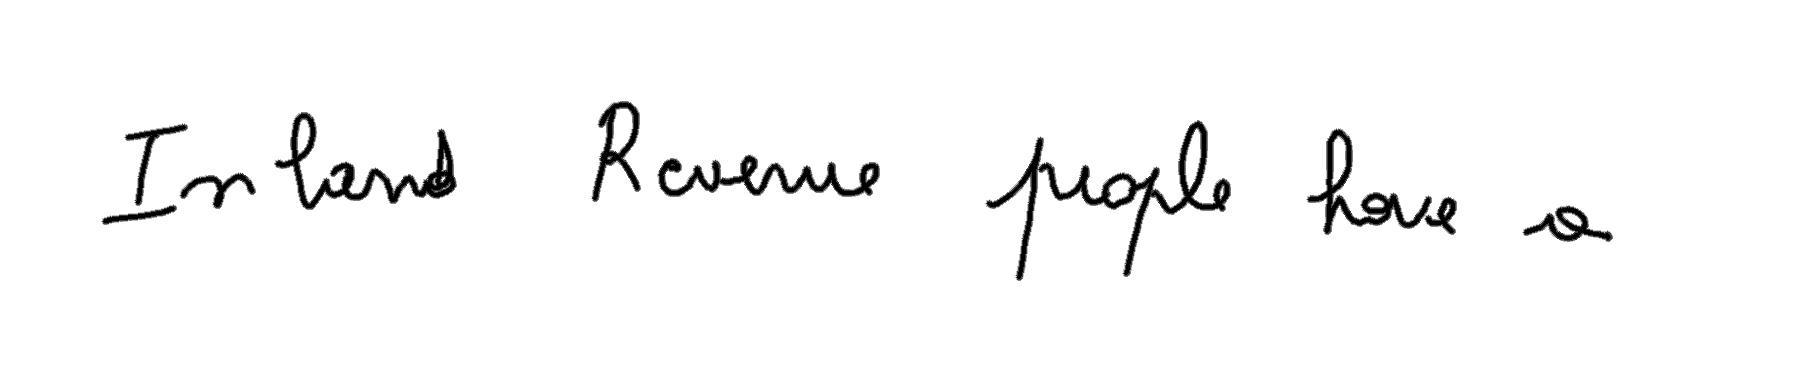 Inland Revenue people have a